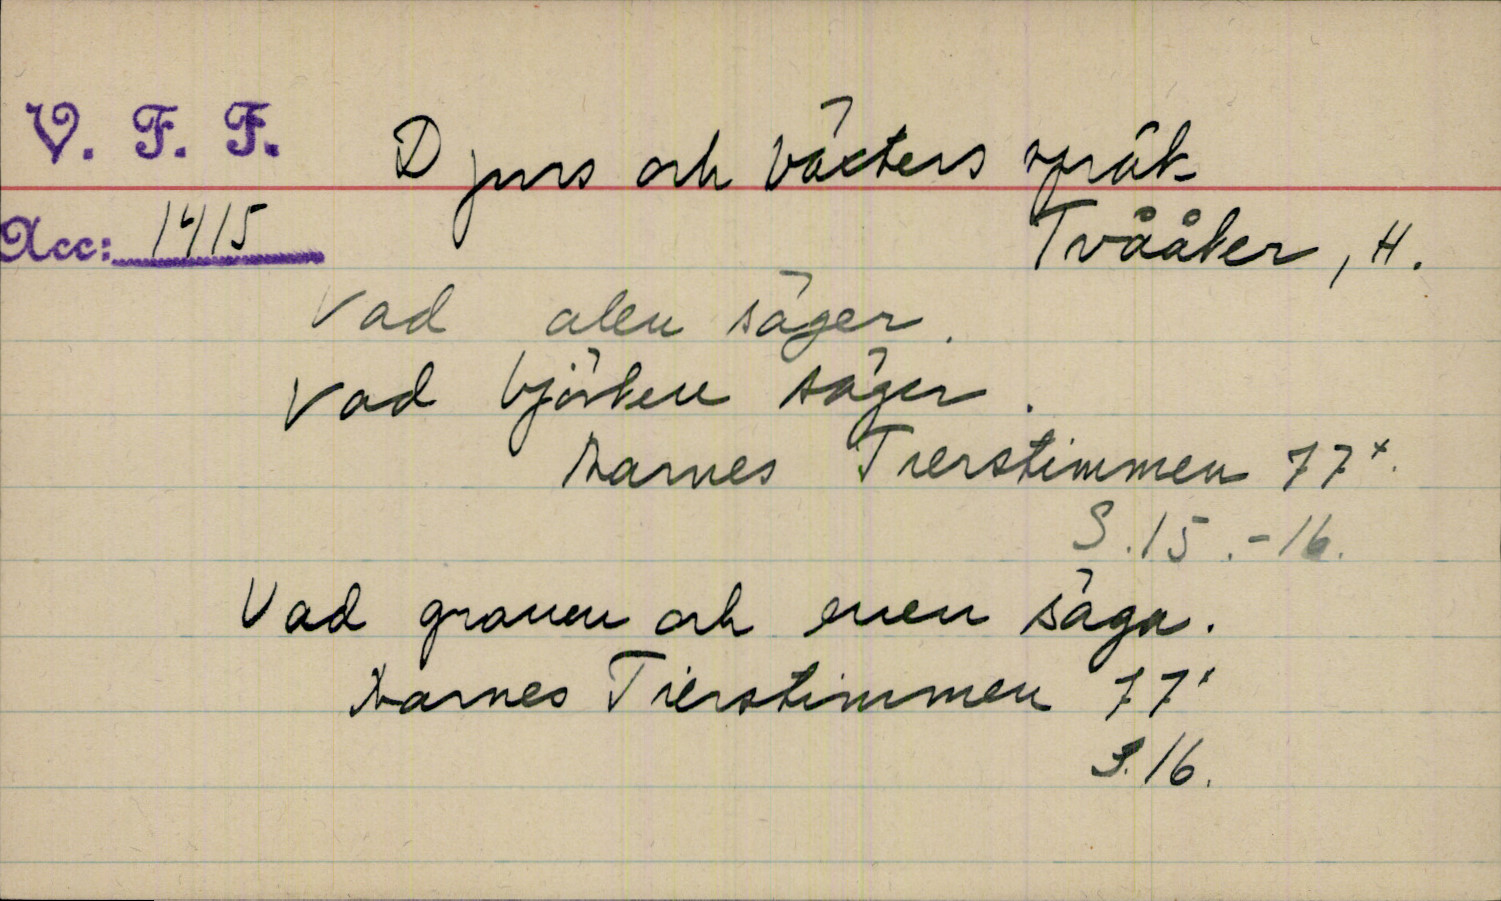 V. F. F.
Djurs och växters språk
Acc: 1415
Tvååker, H.
Vad alen säger.
Vad björken säger.
Aarnes Tierstimmen 77x.
S. 15.-16.
Vad granen och enen säga.
Aarnes Tierstimmen 77x
S. 16.